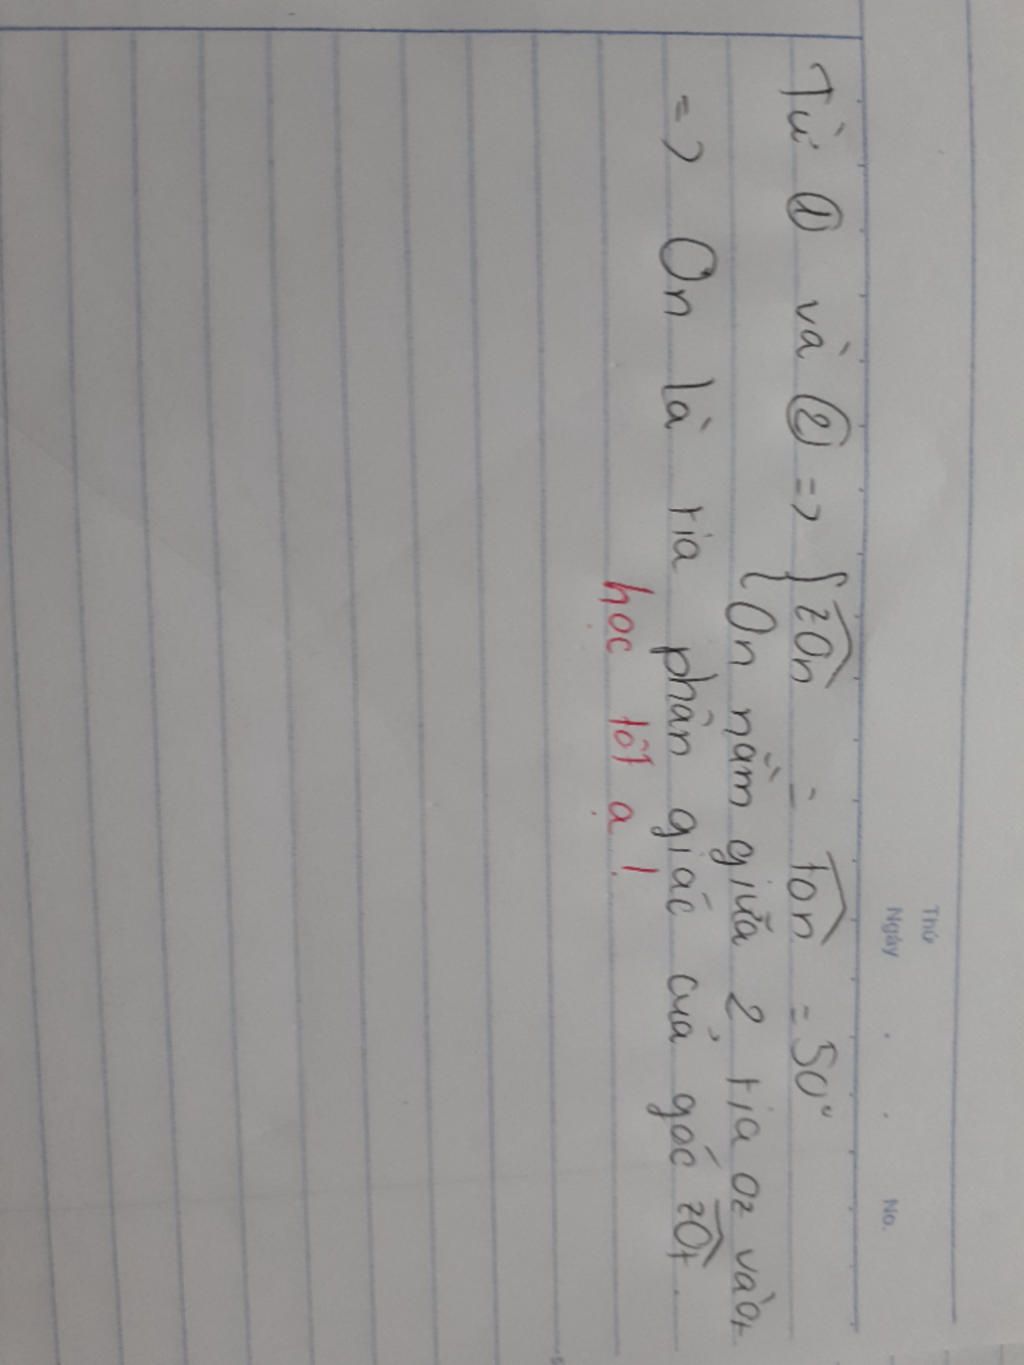 Thứ
Ngày . . No.
Từ ① và ② => { zOn = tOn = 50°
{ On nằm giữa 2 tia Oz và Ot
=> On là tia phân giác của góc zOt.
học tốt ạ !